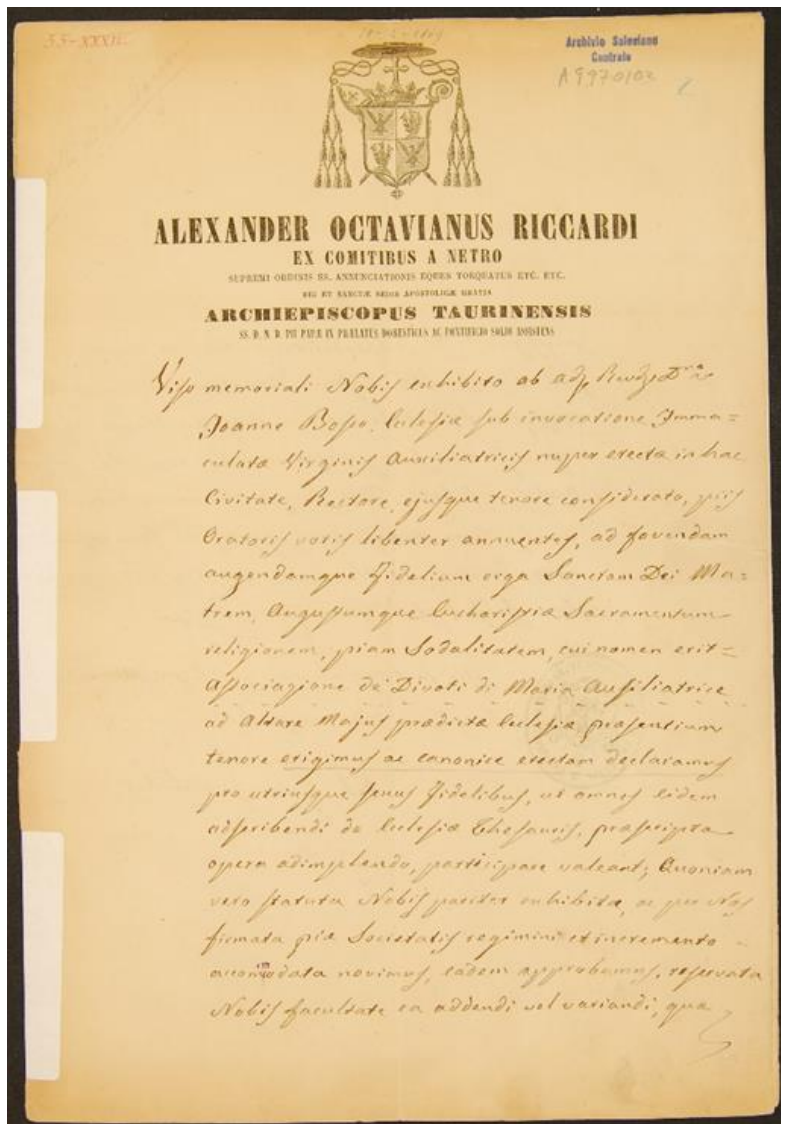 55-XXXII.
18-5-1869
Archivio Salesiano
Centrale
A9970102
ALEXANDER OCTAVIANUS RICCARDI
EX COMITIBUS A NETRO
SUPREMI ORDINIS SS. ANNUNCIATIONIS EQUES TORQUATUS ETC. ETC.
DEI ET SANCTÆ SEDIS APOSTOLICÆ GRATIA
ARCHIEPISCOPUS TAURINENSIS
SS. D. N. D. PII PAPÆ IX PRÆLATUS DOMESTICUS AC PONTIFICIO SOLIO ASSISTENS
Viso memoriali Nobis exhibito ab
Joanne Bosco, Ecclesiæ sub invocatione Imma=
culatæ Virginis Auxiliatricis nuper erectæ in hac
Civitate, Rectore, ejusque tenore considerato, piis
Oratoris votis libenter annuentes, ad fovendam
augendamque Fidelium erga Sanctam Dei Ma=
trem, Augustumque Eucharistiæ Sacramentum
religionem, piam Sodalitatem, cui nomen erit=
Associazione de' Divoti di Maria Ausiliatrice
ad Altare Majus prædictæ Ecclesiæ præsentium
tenore erigimus ac canonice erectam declaramus
pro utriusque sexus Fidelibus, ut omnes eidem
adscribendi de Ecclesiæ Thesauris, præscripta
opera adimplendo, participare valeant; Quoniam
vero statuta Nobis pariter exhibita, ac per Nos
firmata piæ Societatis regimini et incremento
accomodata novimus, eadem approbamus, reservata
Nobis facultate ea addendi vel variandi, quæ